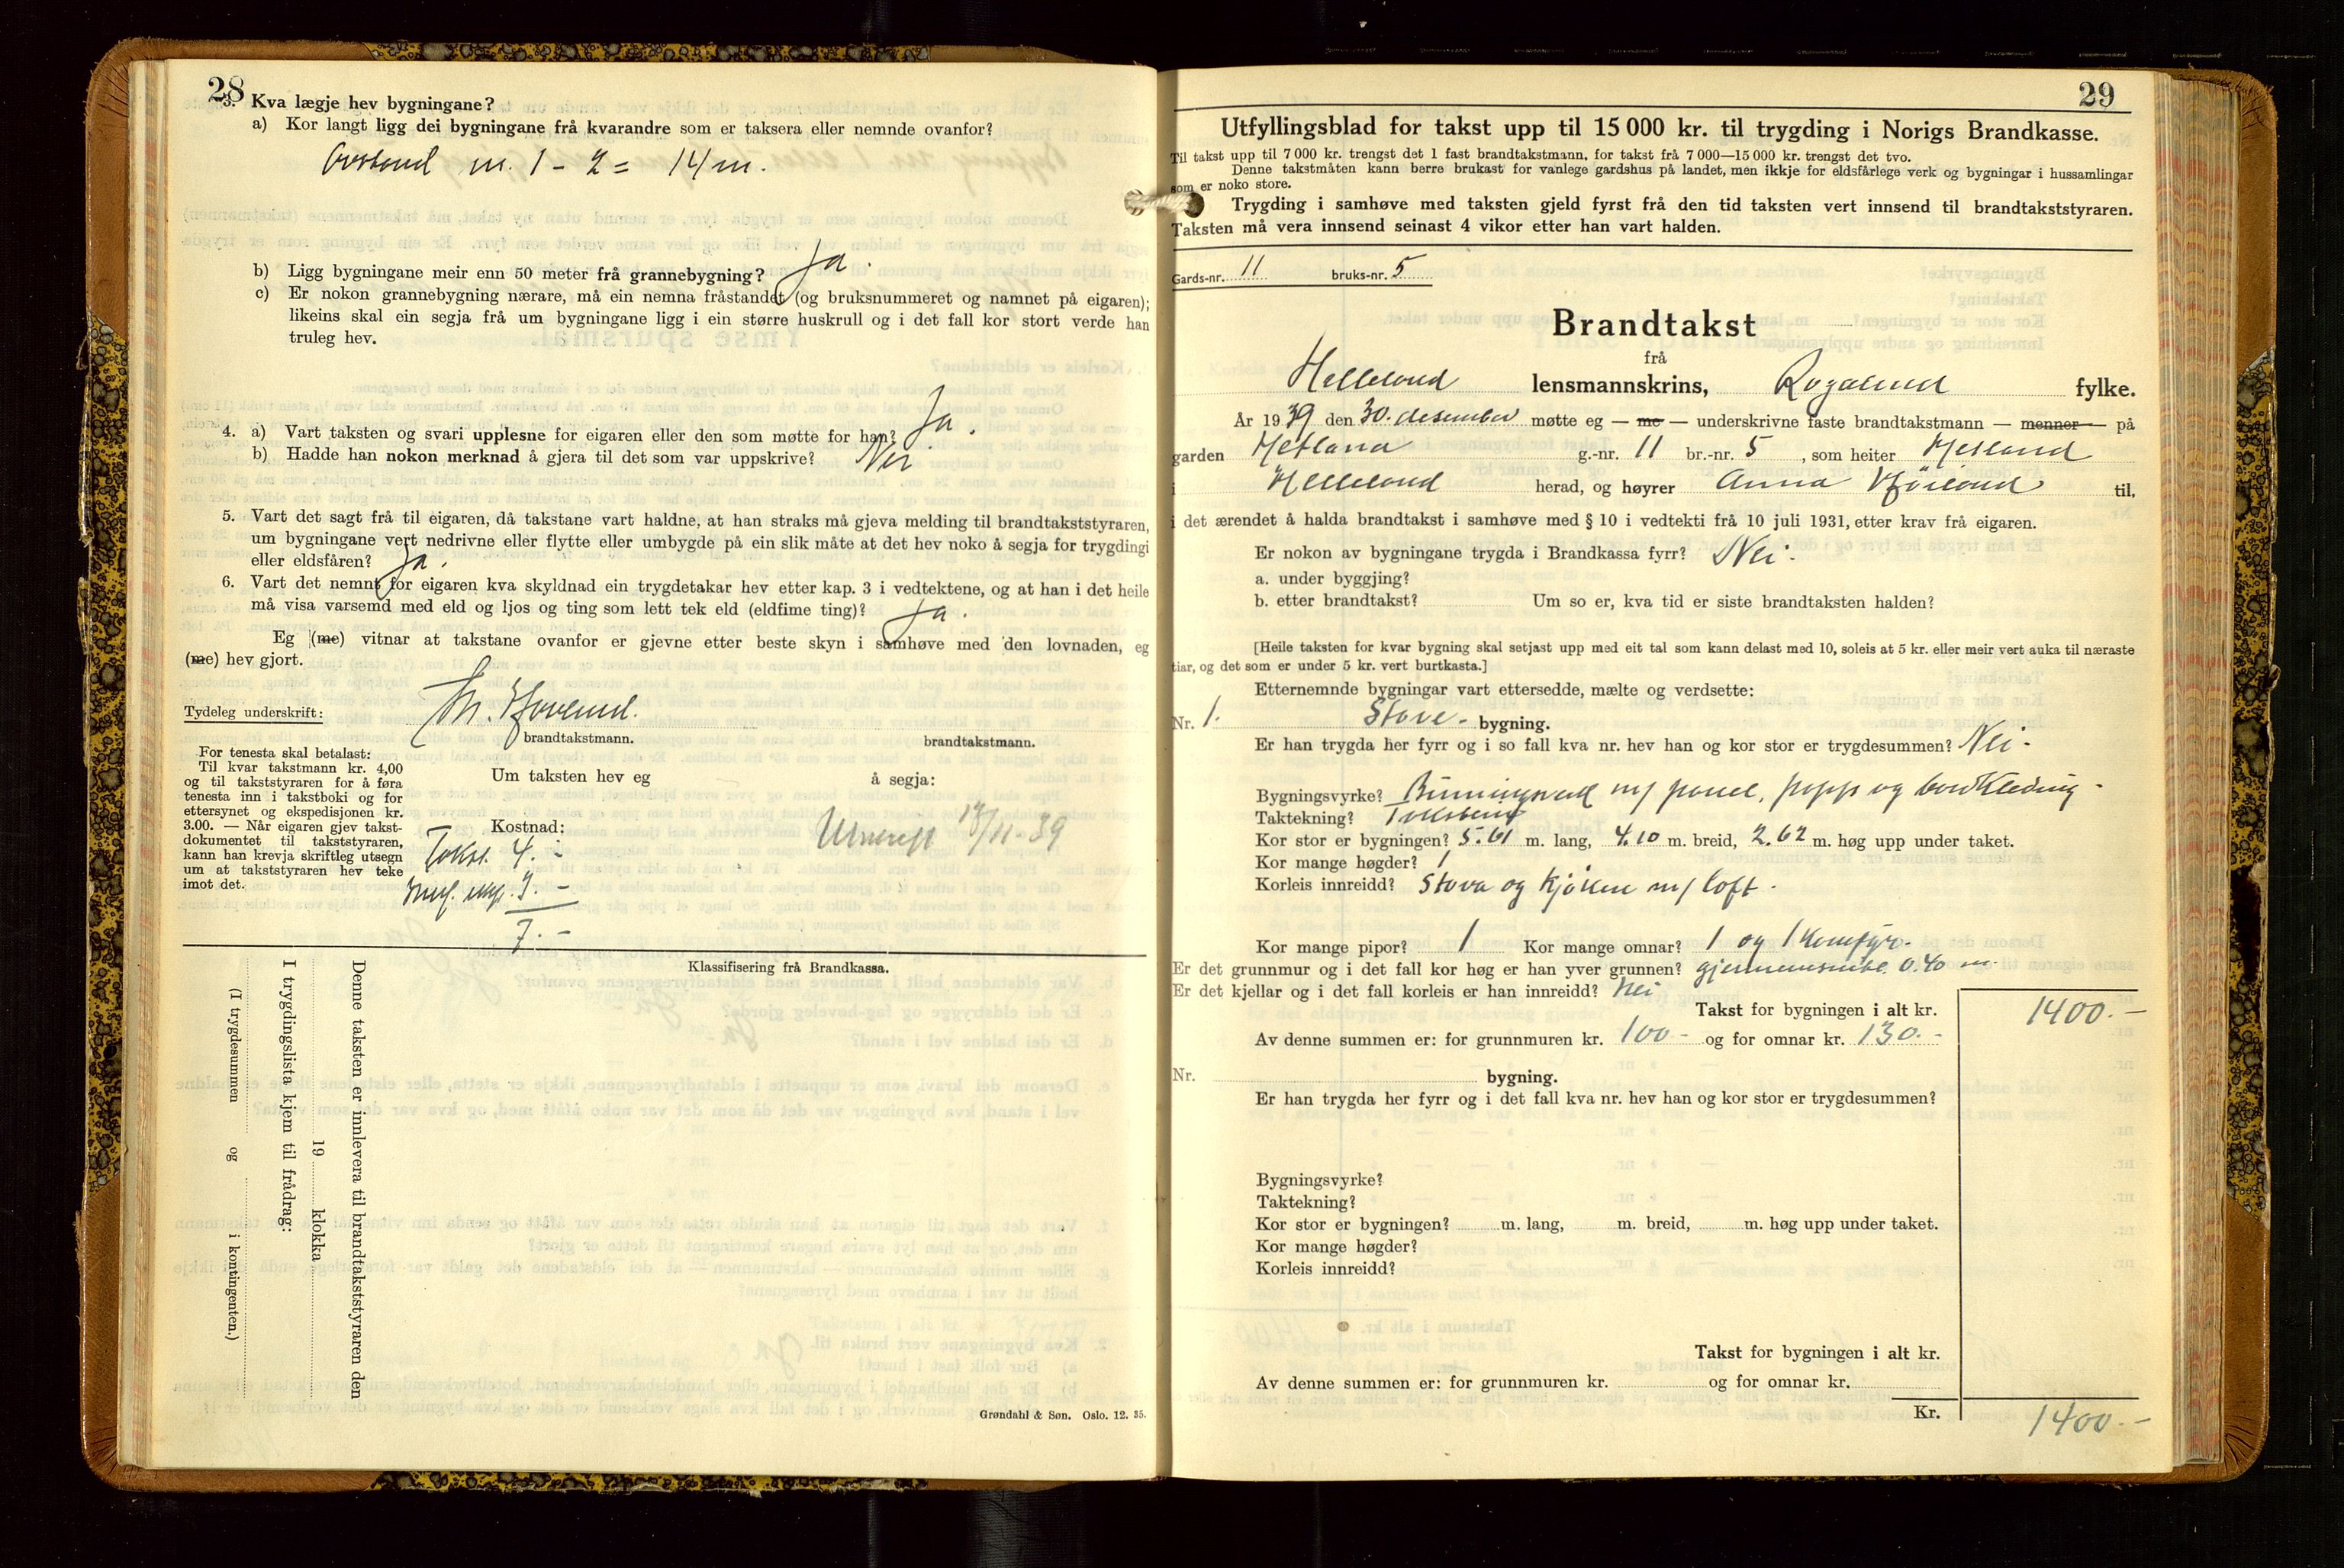 28
3. Kva lægje hev bygningane?
a) Kor langt ligg dei bygningane frå kvarandre som er taksera eller nemnde ovanfor?
Avstand m. 1 - 2 = 14 m.
b) Ligg bygningane meir enn 50 meter frå grannebygning? Ja.
c) Er nokon grannebygning nærare, må ein nemna fråstandet (og bruksnummeret og namnet på eigaren);
likeins skal ein segja frå um bygningane ligg i ein større huskrull og i det fall kor stort verde han
truleg hev.
4. a) Vart taksten og svari upplesne for eigaren eller den som møtte for han? Ja.
b) Hadde han nokon merknad å gjera til det som var uppskrive? Nei
5. Vart det sagt frå til eigaren, då takstane vart haldne, at han straks må gjeva melding til brandtakststyraren,
um bygningane vert nedrivne eller flytte eller umbygde på ein slik måte at det hev noko å segja for trygdingi
eller eldsfåren? Ja.
6. Vart det nemnt for eigaren kva skyldnad ein trygdetakar hev etter kap. 3 i vedtektene, og at han i det heile
må visa varsemd med eld og ljos og ting som lett tek eld (eldfime ting)? Ja.
Eg (me) vitnar at takstane ovanfor er gjevne etter beste skyn i samhøve med den lovnaden, eg
(me) hev gjort.
Tydeleg underskrift:
brandtakstmann. brandtakstmann.
For tenesta skal betalast:
Til kvar takstmann kr. 4,00
og til takststyraren for å føra
tenesta inn i takstboki og for
ettersynet og ekspedisjonen kr.
3.00. — Når eigaren gjev takst-
dokumentet til takststyraren,
kann han krevja skriftleg utsegn
um at takststyraren hev teke
imot det.
Um taksten hev eg å segja:
Kostnad:
Takst. 4. -
3. -
7. -
Klassifisering frå Brandkassa.
Denne taksten er innlevera til brandtakststyraren den
19 klokka
I trygdingslista kjem til frådrag:
(I trygdesummen og i kontingenten.)
Grøndahl & Søn. Oslo. 12. 35.
29
Utfyllingsblad for takst upp til 15 000 kr. til trygding i Norigs Brandkasse.
Til takst upp til 7 000 kr. trengst det 1 fast brandtakstmann, for takst frå 7 000—15 000 kr. trengst det tvo.
Denne takstmåten kann berre brukast for vanlege gardshus på landet, men ikkje for eldsfårlege verk og bygningar i hussamlingar
som er noko store.
Trygding i samhøve med taksten gjeld fyrst frå den tid taksten vert innsend til brandtakststyraren.
Taksten må vera innsend seinast 4 vikor etter han vart halden.
Gards-nr. 11 bruks-nr. 5
Brandtakst
frå
Helleland lensmannskrins, Rogaland fylke.
År 1939 den 30. desember møtte eg — me — underskrivne faste brandtakstmann — menner — på
garden Hetland g.-nr. 11 br.-nr. 5, som heiter Hetland
i Helleland herad, og høyrer Anna til,
i det ærendet å halda brandtakst i samhøve med § 10 i vedtekti frå 10 juli 1931, etter krav frå eigaren.
Er nokon av bygningane trygda i Brandkassa fyrr? Nei.
a. under byggjing?
b. etter brandtakst? Um so er, kva tid er siste brandtaksten halden?
[Heile taksten for kvar bygning skal setjast upp med eit tal som kann delast med 10, soleis at 5 kr. eller meir vert auka til næraste
tiar, og det som er under 5 kr. vert burtkasta.]
Etternemnde bygningar vart ettersedde, mælte og verdsette:
Nr. 1. Stove- bygning.
Er han trygda her fyrr og i so fall kva nr. hev han og kor stor er trygdesummen? Nei -
Bygningsvyrke? Binningsverk m/ panel, papp og bordkledning -
Taktekning? Takstein
Kor stor er bygningen? 5.61 m. lang, 4.10 m. breid, 2.62 m. høg upp under taket.
Kor mange høgder? 1
Korleis innreidd? Stova og kjøken m/ loft.
Kor mange pipor? 1 Kor mange omnar? 1 og 1 komfyr.
Er det grunnmur og i det fall kor høg er han yver grunnen? 0.40 m.
Er det kjellar og i det fall korleis er han innreidd? Nei
Takst for bygningen i alt kr. 1400.-
Av denne summen er: for grunnmuren kr. 100 - og for omnar kr. 130.-
Nr. bygning.
Er han trygda her fyrr og i det fall kva nr. hev han og kor stor er trygdesummen?
Bygningsvyrke?
Taktekning?
Kor stor er bygningen? m. lang, m. breid, m. høg upp under taket.
Kor mange høgder?
Korleis innreidd?
Takst for bygningen i alt kr.
Av denne summen er: for grunnmuren kr. og for omnar kr.
Kr. 1400.-